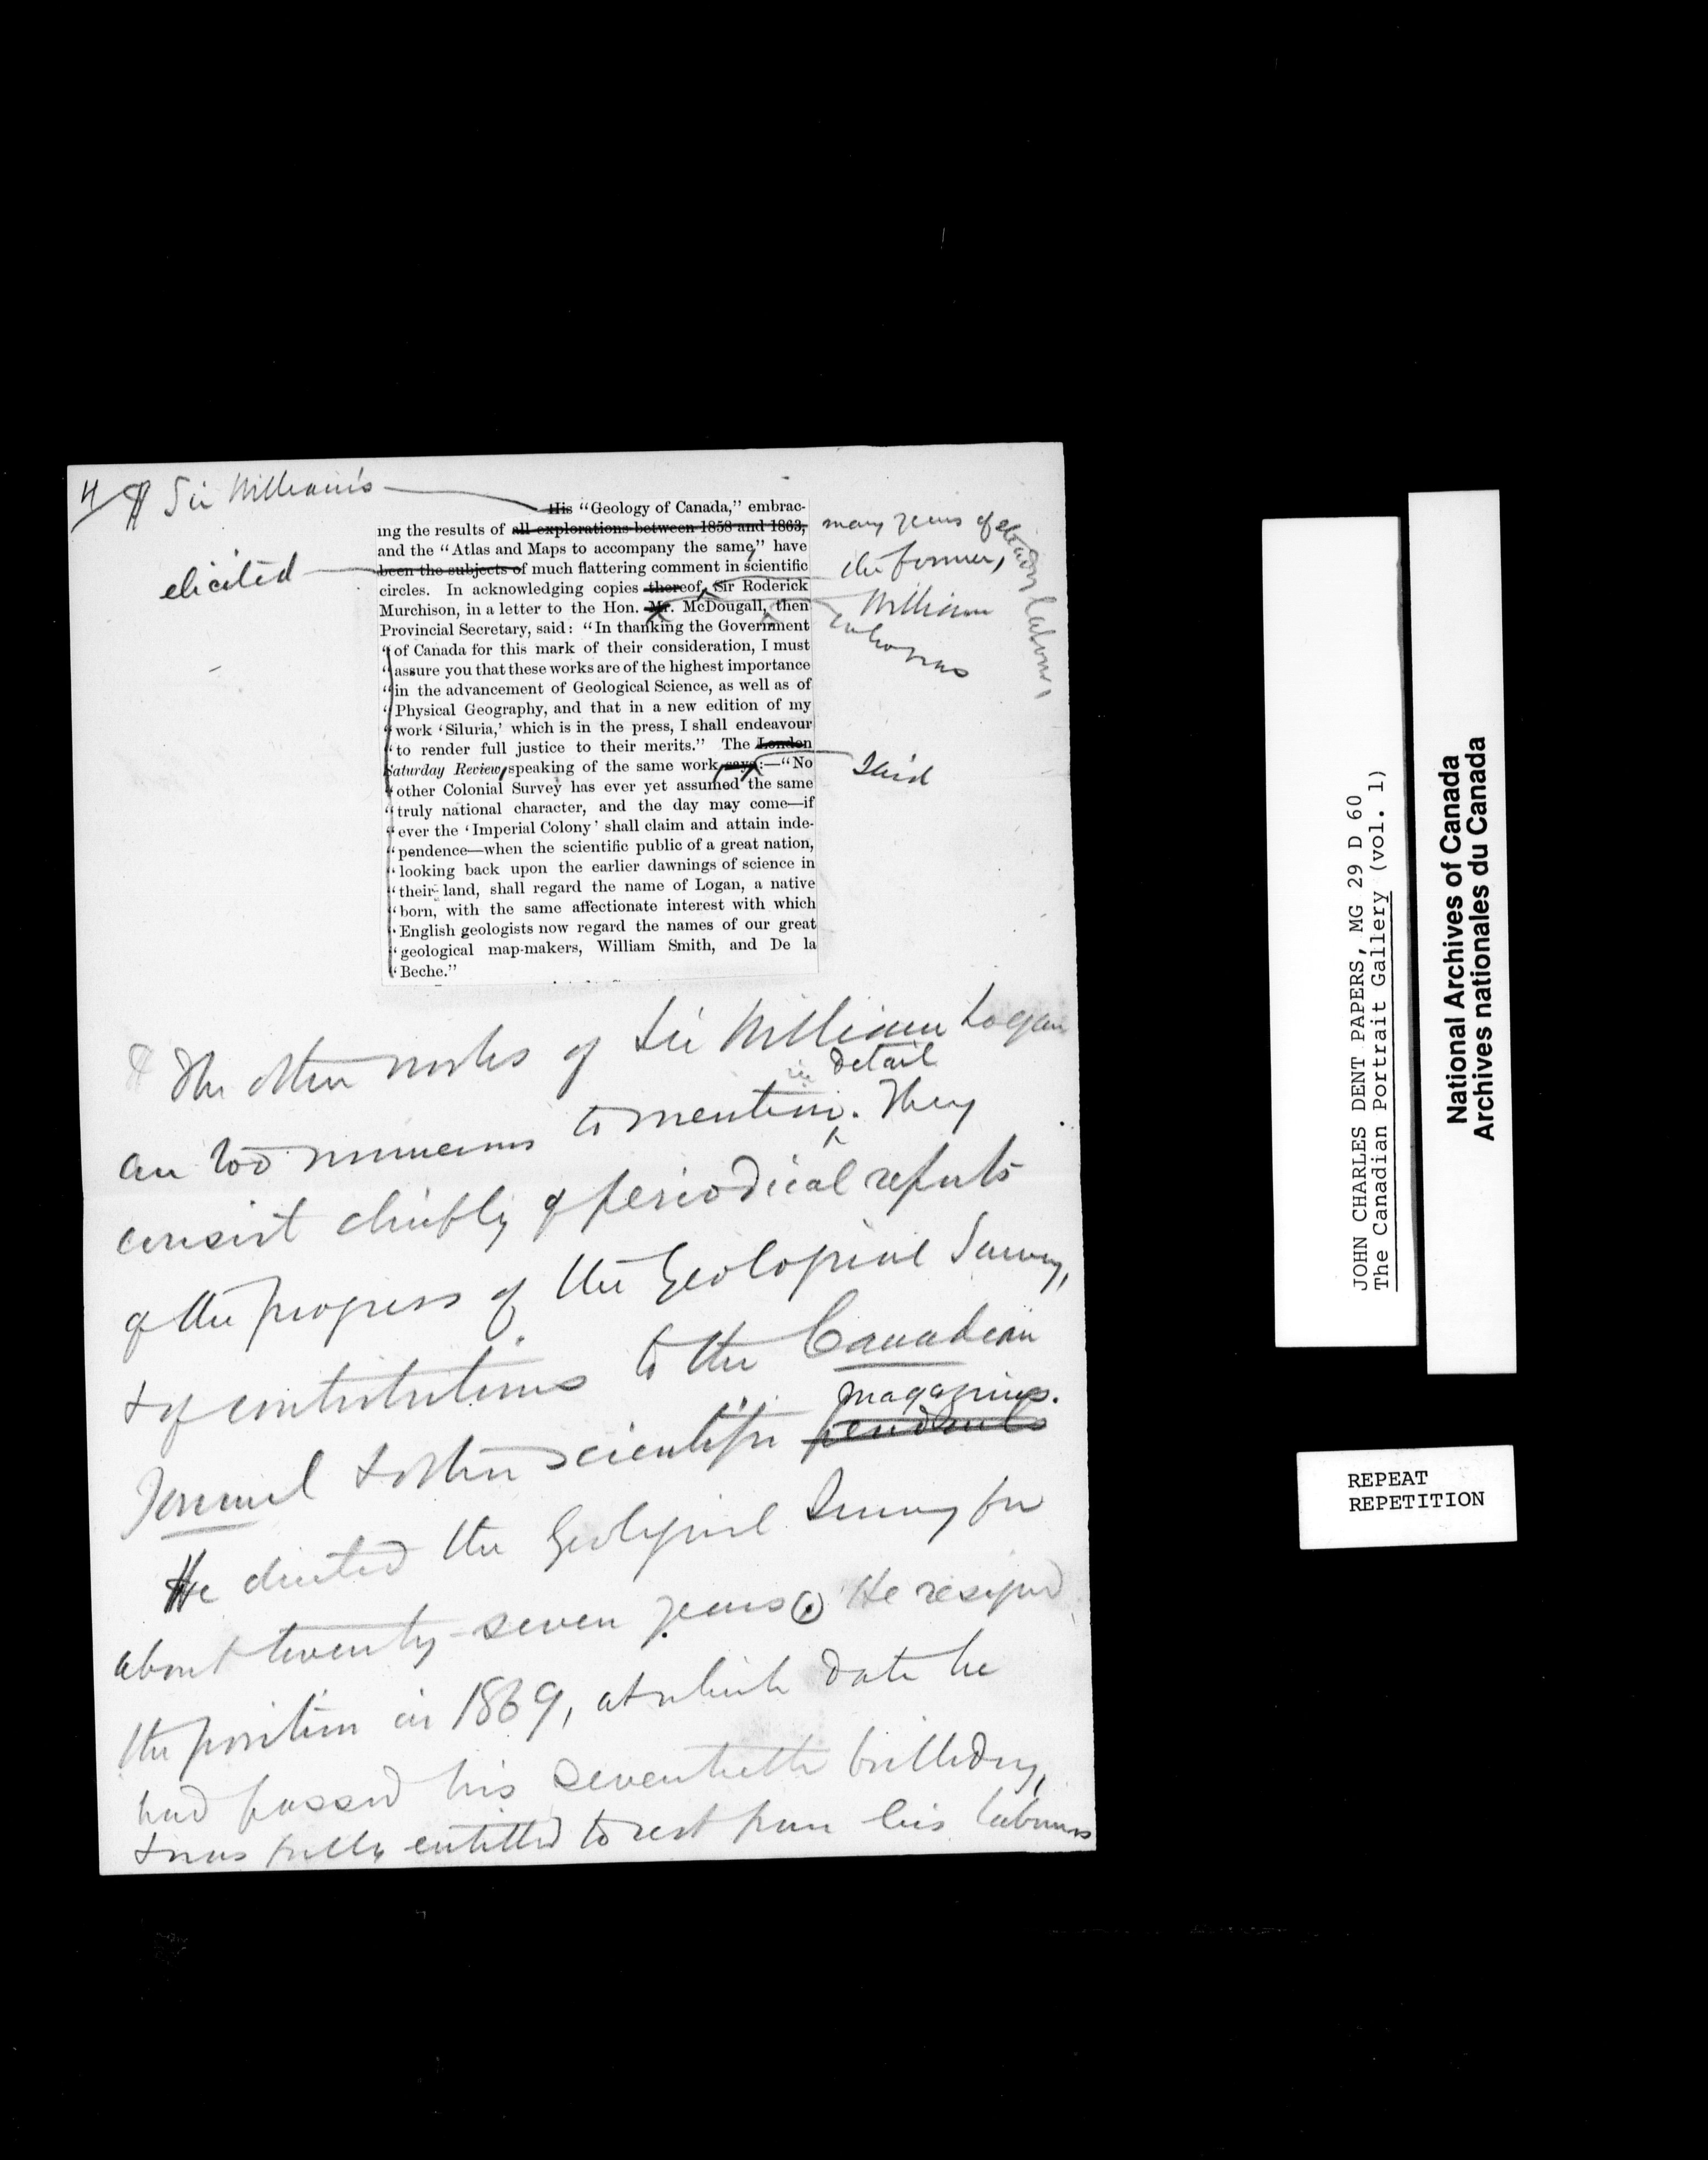 4/ ¶ Sir William's
His "Geology of Canada," embrac-
ing the results of all explorations between 1858 and 1863,
many years of steady labour,
and the "Atlas and Maps to accompany the same," have
elicited
been the subjects of much flattering comment in scientific
the former,
circles. In acknowledging copies thereof, Sir Roderick
William
Murchison, in a letter to the Hon. Mr. McDougall, then
who was
Provincial Secretary, said: "In thanking the Government
"of Canada for this mark of their consideration, I must
"assure you that these works are of the highest importance
"in the advancement of Geological Science, as well as of
"Physical Geography, and that in a new edition of my
"work 'Siluria,' which is in the press, I shall endeavour
"to render full justice to their merits." The London
Saturday Review, speaking of the same work, says:—"No
said
"other Colonial Survey has ever yet assumed the same
"truly national character, and the day may come—if
"ever the 'Imperial Colony' shall claim and attain inde-
"pendence—when the scientific public of a great nation,
"looking back upon the earlier dawnings of science in
"their land, shall regard the name of Logan, a native
"born, with the same affectionate interest with which
"English geologists now regard the names of our great
"geological map-makers, William Smith, and De la
"Beche."
¶ The other works of Sir William Logan
in detail
are too numerous to mention. They
consist chiefly of periodical reports
of the progress of the Geological Survey,
& of contributions to the Canadian
magazines.
Journal & other scientific periodicals
He directed the Geological Survey for
about twenty-seven years. He resigned
the position in 1869, at which date he
had passed his seventieth birthday,
& was fully entitled to rest from his labours
JOHN CHARLES DENT PAPERS, MG 29 D 60
The Canadian Portrait Gallery (vol. 1)
National Archives of Canada
Archives nationales du Canada
REPEAT
REPETITION